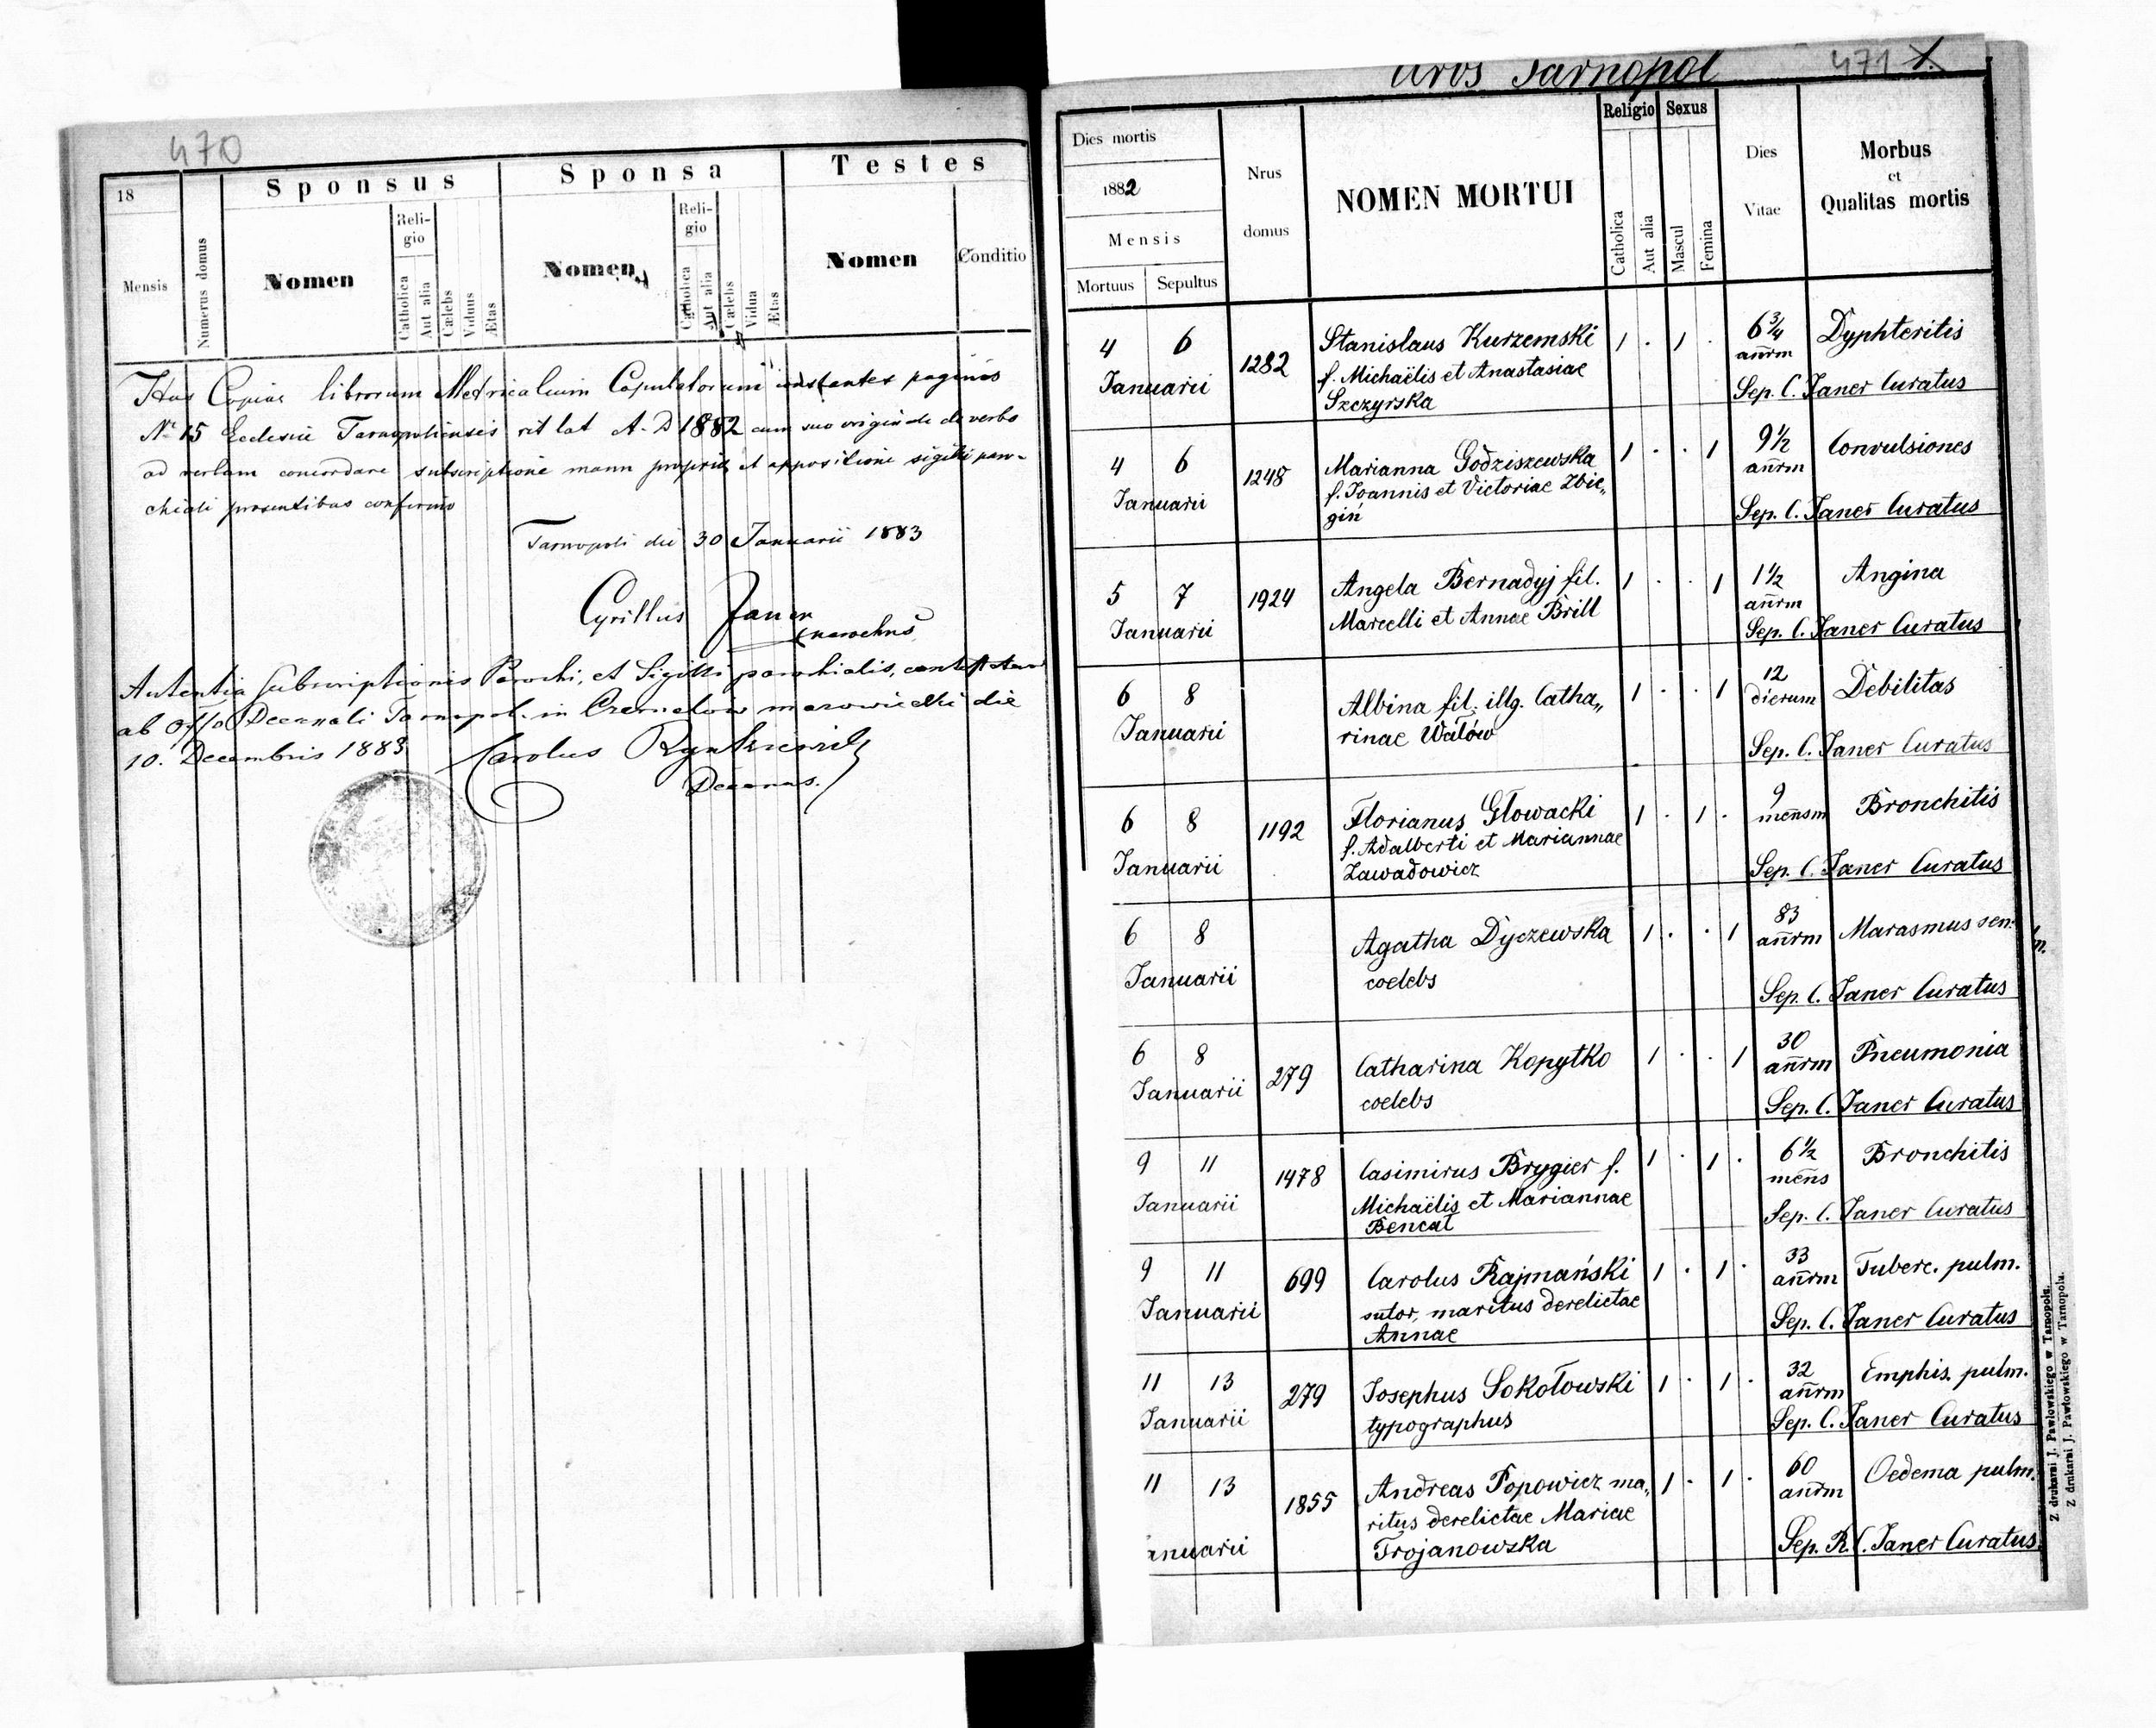 470
18
Mensis
Numerus domus
Sponsus
Nomen
Reli-
gio
Catholica
Aut alia
Cælebs
Viduus
Ætas
Sponsa
Nomen
Reli-
gio
Catholica
Aut alia
Cælebs
Vidua
Ætas
Testes
Nomen
Conditio
Has Copias librorum Metricalium Copulatorum constantes paginis
Nr 15 Ecclesiae Tarnopoliensis rit lat A. D 1882 cum suo originale de verbo
ad verbum concordare subscriptione manu propria et appositione sigilli paro-
chiali presentibus confirmo
Tarnopoli die 30 Januarii 1883
Cyrillus Janer
parochus
Autentia subscriptionis Parochi, et Sigilli parochialis, contestatur
ab Offo Decanali Tarnopol. in Czernelow mazowiecki die
10. Decembris 1883 Carolus
Decanus.
Urbs Tarnopol
471 1.
Dies mortis
1882
Mensis
Mortuus Sepultus
Nrus
domus
NOMEN MORTUI
Religio
Catholica
Aut alia
Sexus
Mascul
Femina
Dies
Vitae
Morbus
et
Qualitas mortis
4 6 1282 Stanislaus Kurzemski 1 . 1 . 6¾ Dyphteritis
Januarii f. Michaëlis et Anastasiae añrm
Szczyrska Sep. C. Janer Curatus
4 6 1248 Marianna Godziszewska 1 . . 1 9½ Convulsiones
Januarii f. Joannis et Victoriae Zbie„ añrm
giń Sep. C. Janer Curatus
5 7 1924 Angela Bernadyj fil. 1 . . 1 1½ Angina
Januarii Marcelli et Annae Brill añrm
Sep. C. Janer Curatus
6 8 Albina fil. illg. Catha„ 1 . . 1 12 Debilitas
Januarii rinae Watów dierum
Sep. C. Janer Curatus
6 8 1192 Florianus Głowacki 1 . 1 . 9 Bronchitis
Januarii f. Adalberti et Mariannae meñsm
Zawadowicz Sep. C. Janer Curatus
6 8 Agatha Dyczewska 1 . . 1 83 Marasmus sen.
Januarii coelebs añrm
Sep. C. Janer Curatus
6 8 279 Catharina Kopytko 1 . . 1 30 Pneumonia
Januarii coelebs añrm
Sep. C. Janer Curatus
9 11 1478 Casimirus Brygier f. 1 . 1 . 6½ Bronchitis
Januarii Michaëlis et Mariannae meñs
Bencal Sep. C. Janer Curatus
9 11 699 Carolus Rajmański 1 . 1 . 33 Tuberc. pulm.
Januarii sutor, maritus derelictae añrm
Annae Sep. C. Janer Curatus
11 13 279 Josephus Sokołowski 1 . 1 . 32 Emphis. pulm.
Januarii typographus añrm
Sep. C. Janer Curatus
11 13 1855 Andreas Popowicz ma„ 1 . 1 . 60 Oedema pulm.
anuarii ritus derelictae Mariae añrm
Trojanowska Sep. R. C. Janer Curatus
Z drukarni J. Pawłowskiego w Tarnopolu.
Z drukarni J. Pawłowskiego w Tarnopolu.